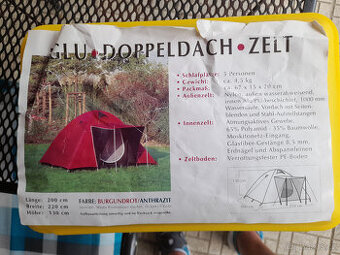 GLU • DOPPELDACH • ZELT
• Schlafplätze: 3 Personen
• Gewicht: ca. 4,5 kg
• Packmaß: ca. 67 x 15 x 20 cm
• Außenzelt: Nylon, außen wasserabweisend,
innen beschichtet, 1000 mm
Wassersäule, Vordach mit Seiten-
blenden und Stahl-Aufstellstangen
• Innenzelt: Atmungsaktives Gewebe:
65% Polyamid / 35% Baumwolle,
Moskitonetz-Eingang,
Glasfiber-Gestänge 8,5 mm,
Erdnägel und Abspannleinen
• Zeltboden: Verrottungsfester PE-Boden
Länge: 200 cm
Breite: 220 cm
Höhe: 130 cm
FARBE: BURGUNDROT/ANTHRAZIT